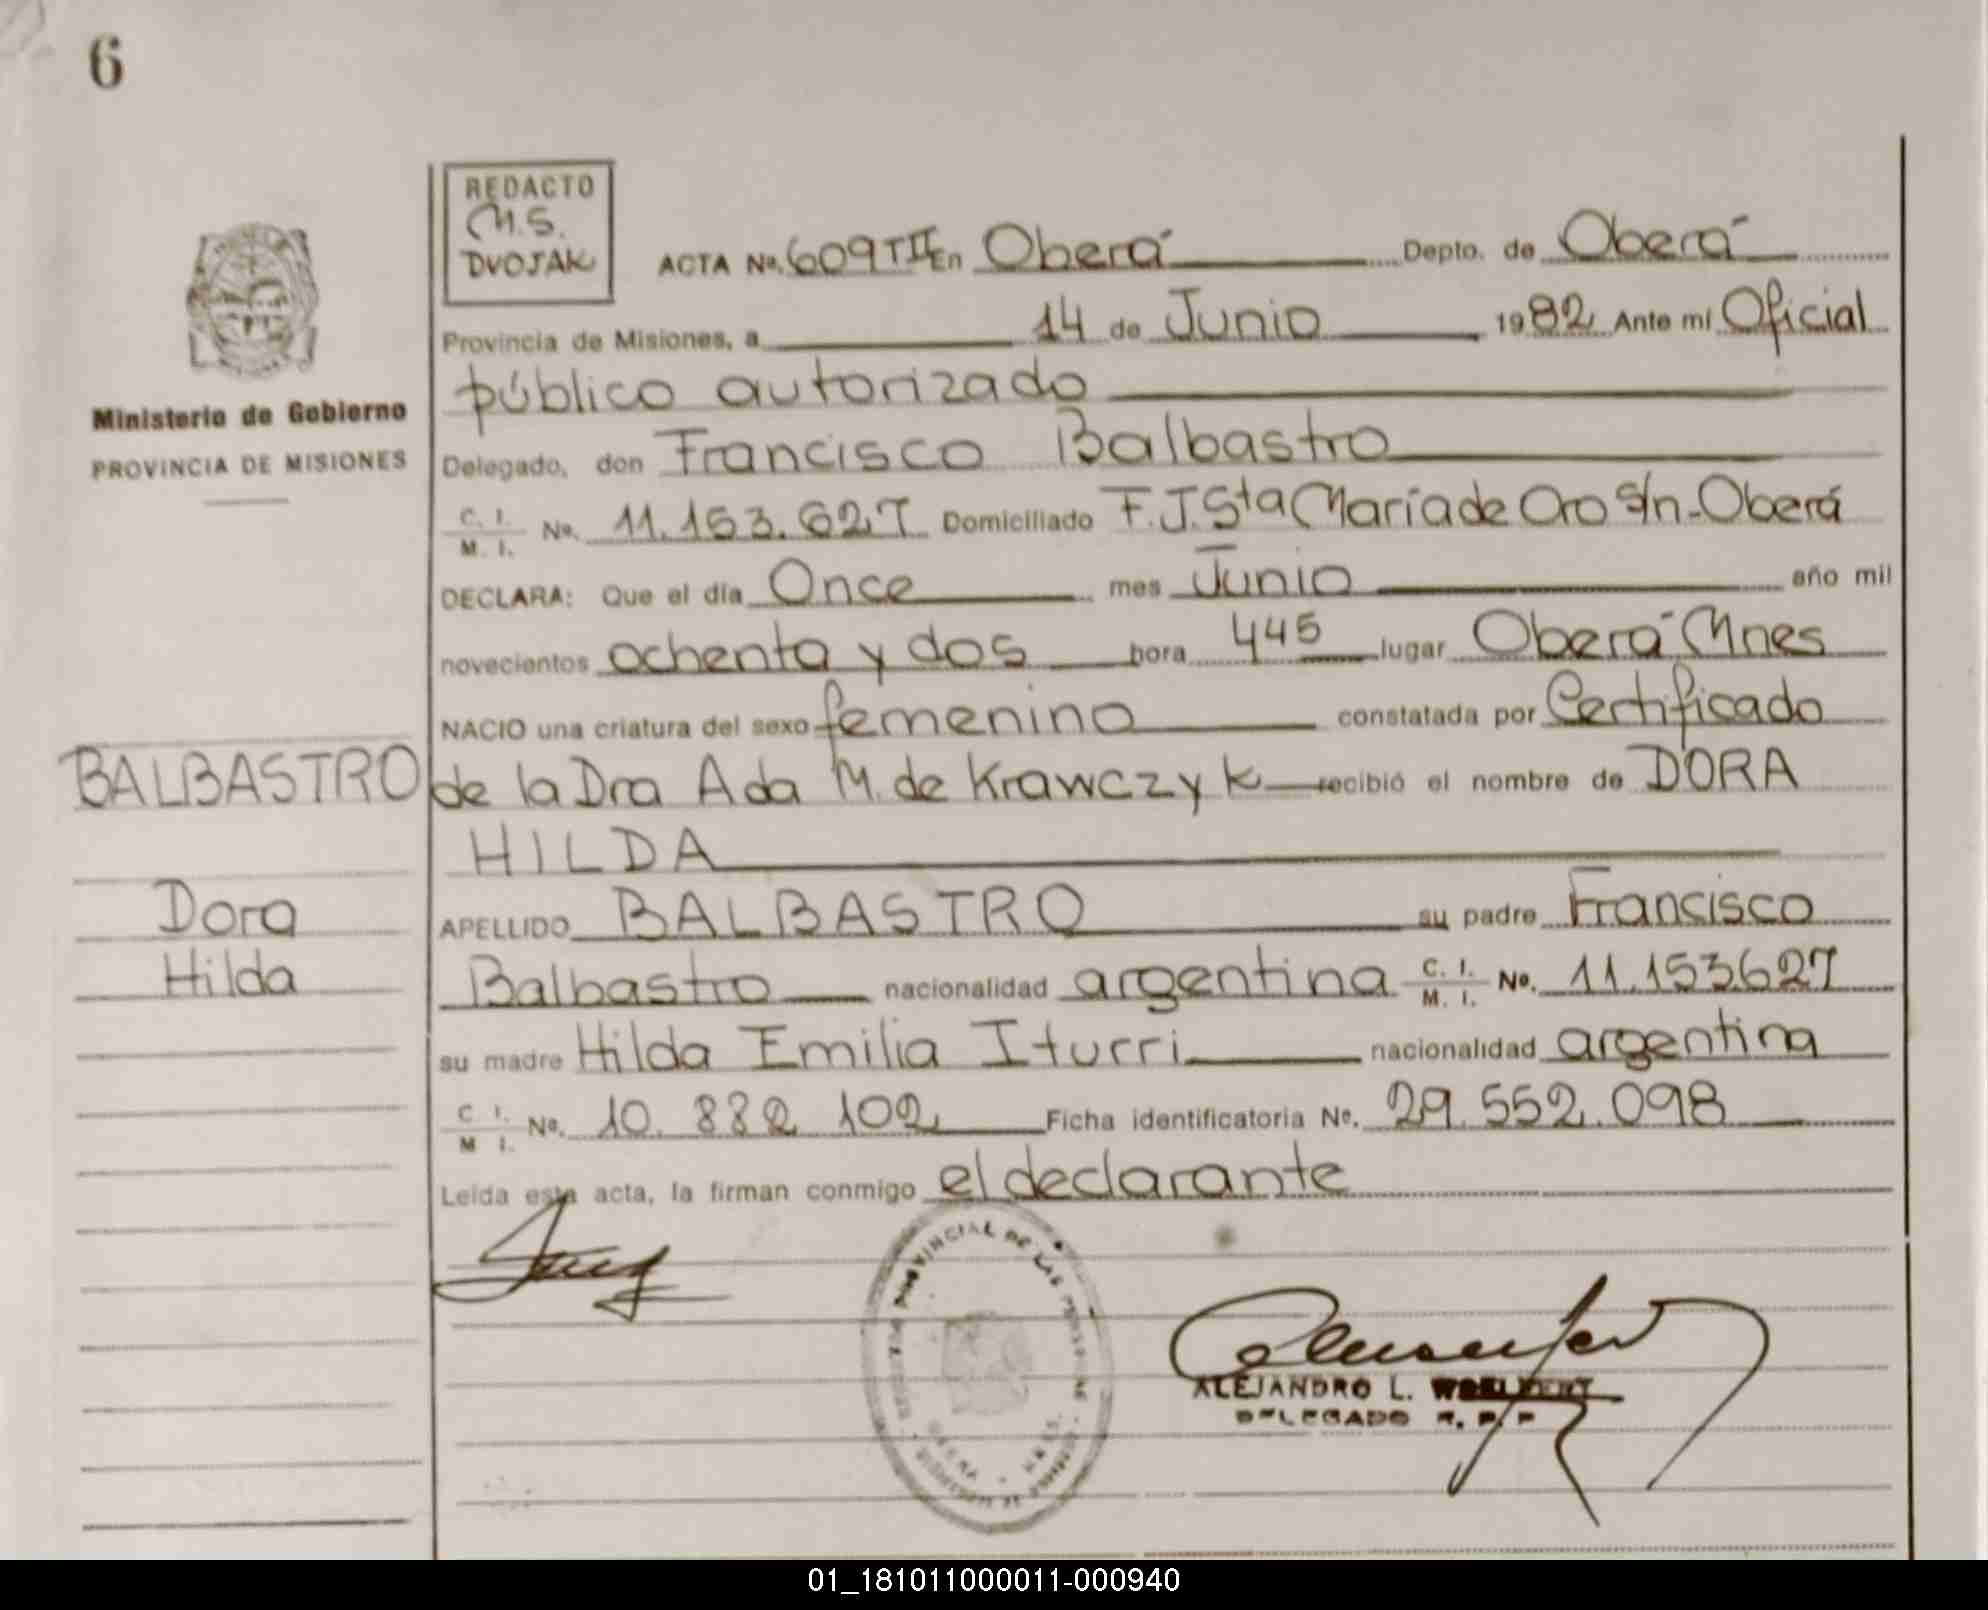 6
REDACTO
M.S.
DVOJAK
ACTA No. 609 TII En Oberá Depto. de Oberá
Provincia de Misiones, a 14 de Junio 1982 Ante mí Oficial
público autorizado
Delegado, don Francisco Balbastro
C. I. M. I. No. 11.153.627 Domiciliado F.J.Sta María de Oro S/n-Oberá
DECLARA: Que el día Once mes Junio año mil
novecientos ochenta y dos hora 445 lugar Oberá Mnes
NACIO una criatura del sexo femenino constatada por Certificado
de la Dra Ada M. de Krawczyk recibió el nombre de DORA
HILDA
APELLIDO BALBASTRO su padre Francisco
Balbastro nacionalidad argentina C. I. M. I. No. 11.153.627
su madre Hilda Emilia Iturri nacionalidad argentina
C. I. M I. No. 10.882.102 Ficha identificatoria No. 29.552.098
Leída esta acta, la firman conmigo el declarante
Ministerio de Gobierno
PROVINCIA DE MISIONES
BALBASTRO
Dora
Hilda
PROVINCIAL DE LAS
ALEJANDRO L.
DELEGADO R. P. P
01_181011000011-000940